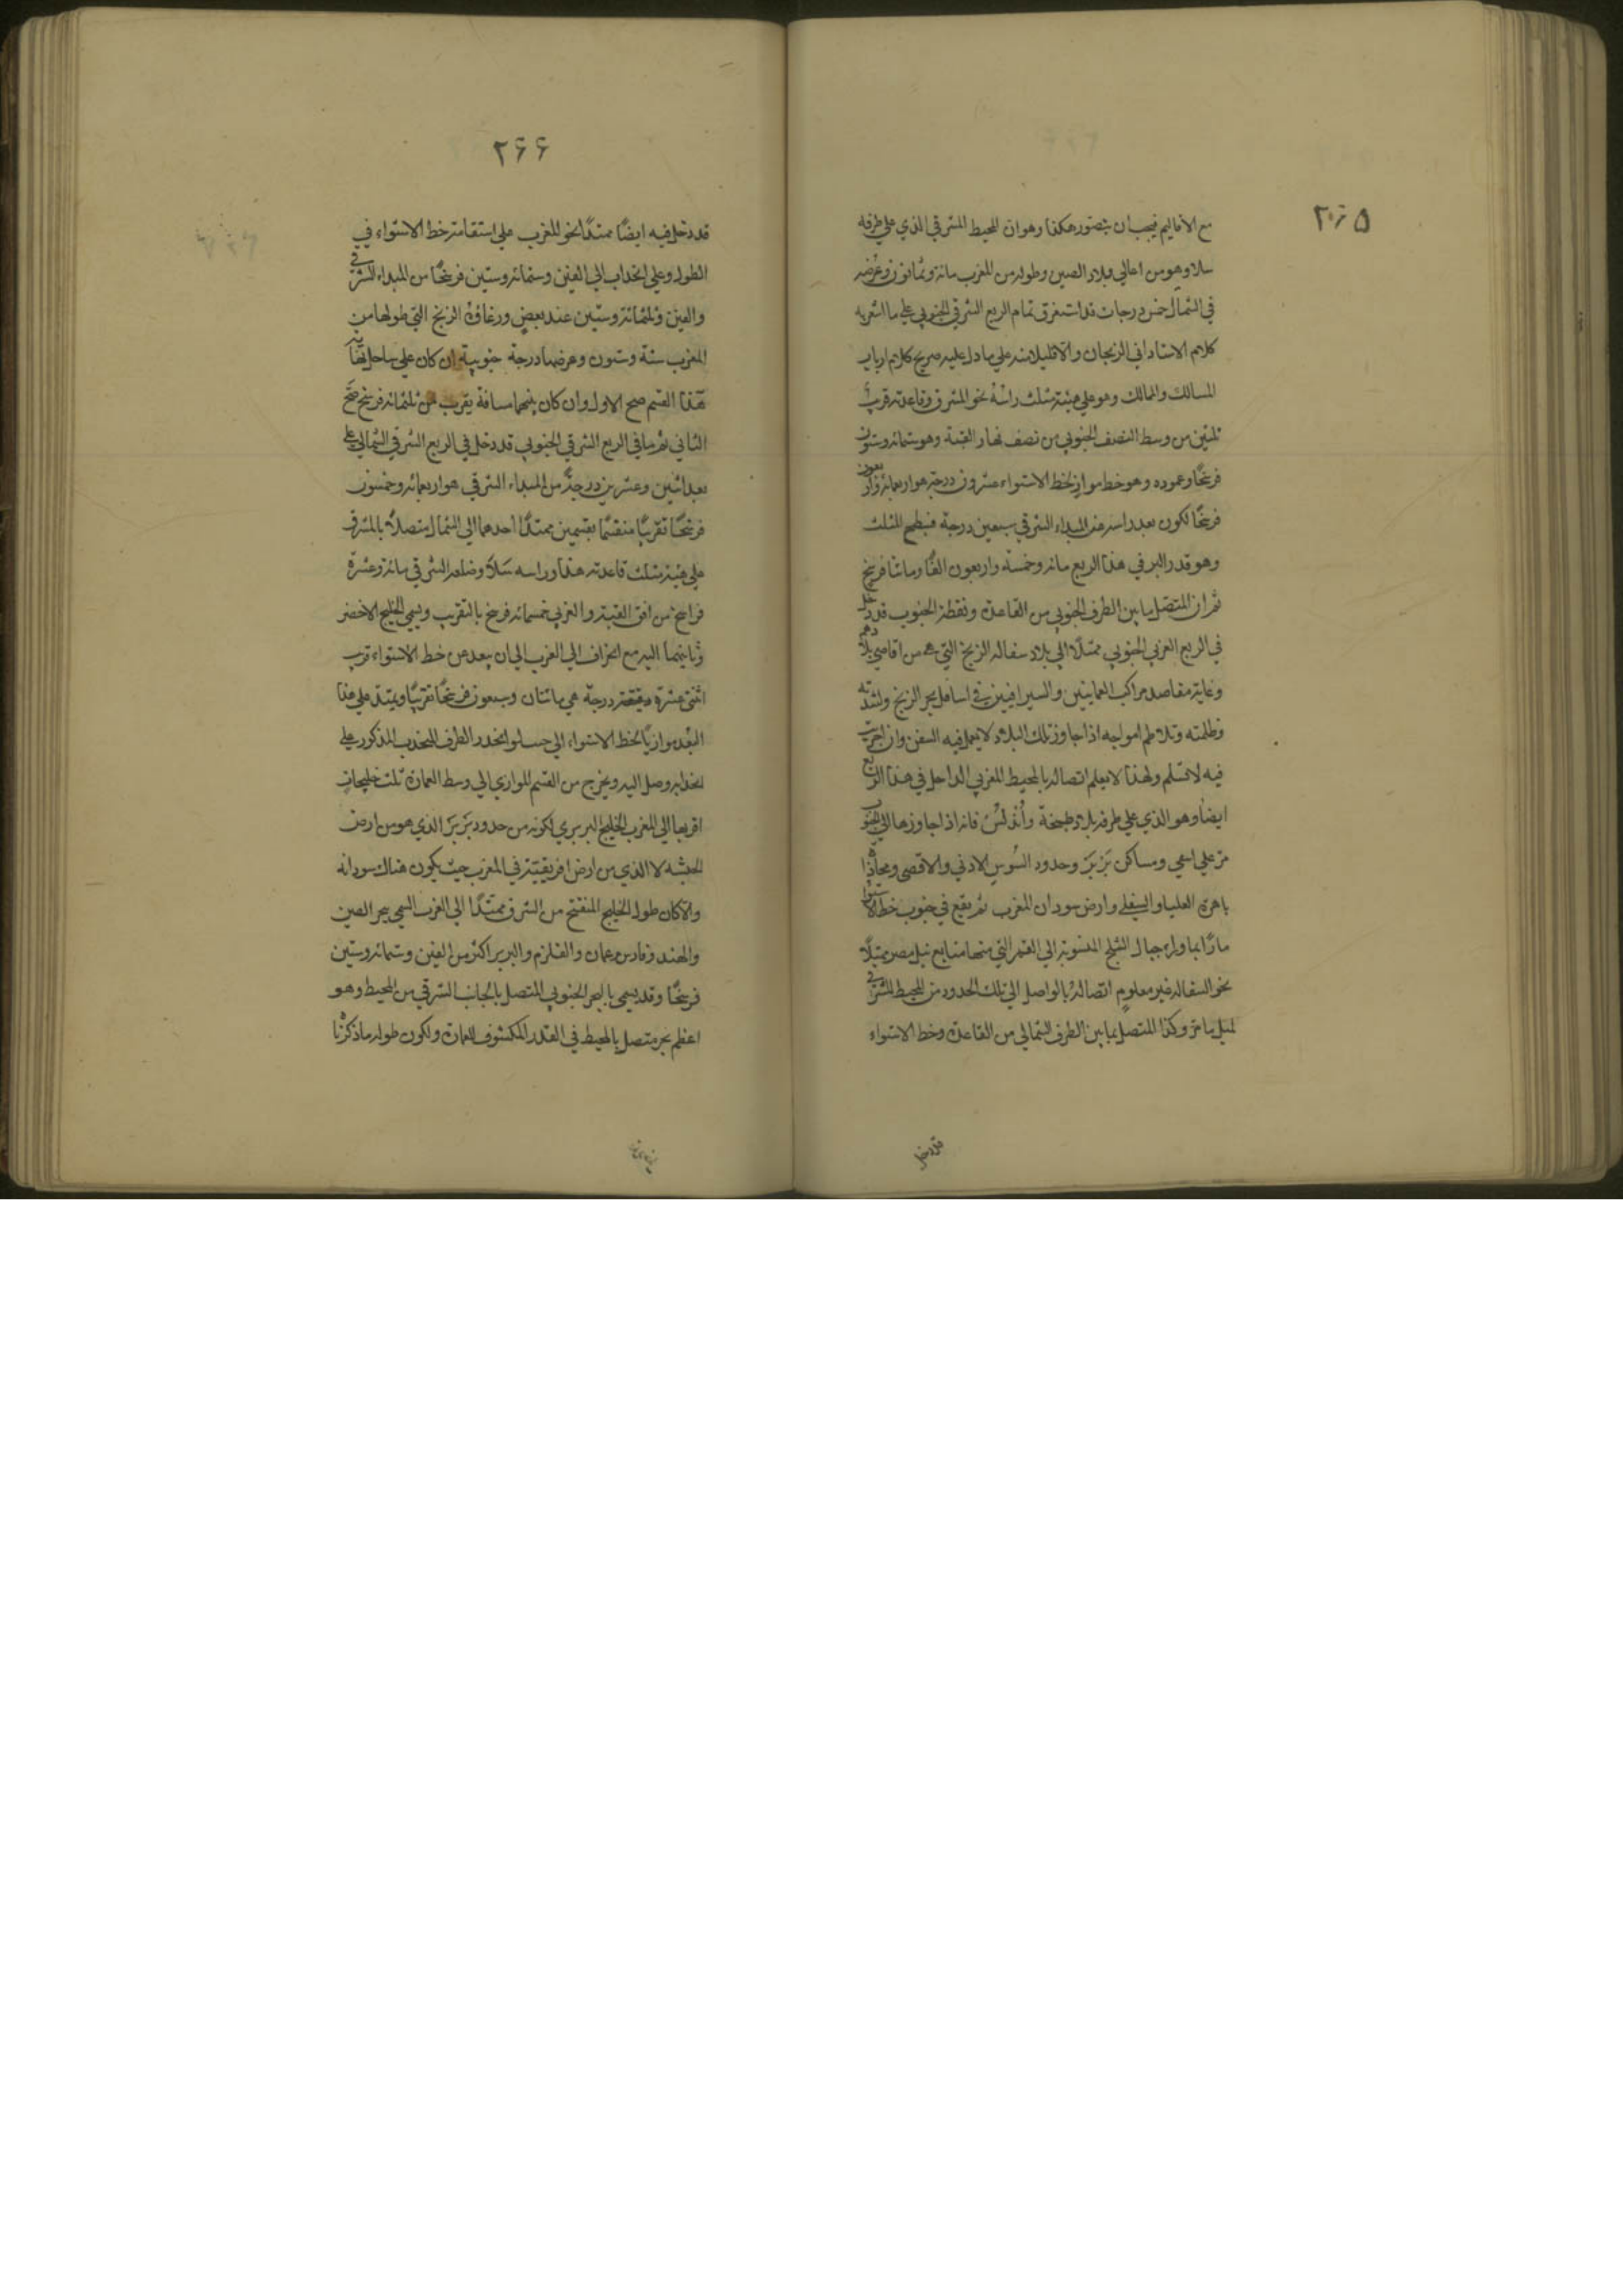 ٢٠٫٥
مع الأقاليم فيجب ان يتصور هكذا وهو ان المحيط المشرقي الذي علي طرفه
سلا وهو من اعالي بلاد الصين وطوله من المغرب مائة وثمانون وعرضه
في الشمال خمس درجات قد استغرق تمام الربع الشرقي الجنوبي علي ما اشعر به
كلام الاستاد ابي الريحان والا قليلا منه علي ما دل عليه صريح كلام ارباب
المسالك والممالك وهو علي هيئة مثلث راسه نحو المشرق وقاعدته قريب
ثلثين من وسط النصف الجنوبي من نصف نهار القبة وهو ستمائة وستون
فرسخًا وعموده وهو خط مواز لخط الاستواء عشرون درجة هو اربعمائة واربعون
فرسخًا لكون بعد راسه عن المبداء الشرقي سبعين درجة فسطح المثلث
وهو قدر البر في هذا الربع مائة وخمسة واربعون الفًا ومائتا فرسخ
ثم ان المتصل ما بين الطرف الجنوبي من القاعدة ونقطة الجنوب قد دخل
في الربع الغربي الجنوبي ممتدًا الي بلاد سفالة الزنج التي هي من اقاصي بلادهم
وغاية مقاصد مراكب العمانيين والسيرافيين في اسافل بحر الزنج ولشدته
وظلمته وتلاطم امواجه اذا جاوز تلك البلاد لا يعمل فيه السفن وان اجريت
فيه لا تسلم ولهذا لا يعلم اتصاله بالمحيط المغربي الداخل في هذا الربع
ايضا وهو الذي علي طرفه بلاد طنجة واندلس فانه اذا جاوزها الي الجنوب
مر علي ومساكن بَربَر وحدود السوس الادني والاقصي ومحاذيا
العليا والسفلي وارض سودان المغرب ثم يقع في جنوب خط الاستوا
مارًا بما وراء جبال الثلج المنسوبة الي القمر التي منها منابع نيل مصر ممتدًا
نحو السفالة غير معلوم اتصاله بالواصل الي تلك الحدود من المحيط المشرقي
لمثل ما مر وكذا المتصل بما بين الطرف الشمالي من القاعدة وخط الاستواء
قد دخل
٢٦٦
قد دخل فيه ايضًا ممتدًا نحو المغرب علي استقامة خط الاستواء في
الطول وعلي انحداب الي الفين وستمائة وستين فرسخًا من المبداء الشرقي
والفين وثلثمائة وستين عند بعض الزنج التي طولها من
المغرب ستة وستون وعرضها درجة جنوبية ان كان علي ساحل نهاية
هذا القسم صح الاول وان كان بينهما مسافة يقرب من ثلثمائة فرسخ صح
الثاني ثم ما في الربع الشرقي الجنوبي قد دخل في الربع الشرقي الشمالي علي
بعد اثنين وعشرين درجة من المبداء الشرقي هو اربعمائة وخمسون
فرسخًا تقريبًا منقسمًا بقسمين ممتدًا احدهما الي الشمال متصلا بالمشرق
علي هيئة مثلث قاعدته هذا وراسه سَلا وضلعه الشرقي مائة وعشرة
فراسخ من افق القبة والغربي خمسمائة فرسخ بالتقريب ويسمي الخليج الاخضر
وثانيهما اليه مع انحراف الي الغرب الي ان يبعد من خط الاستواء قرب
اثنتي عشرة درجة هي مائتان وسبعون فرسخًا تقريبًا ويمتد علي هذا
البعد موازيًا لخط الاستواء الي حيث لو انحدر الطرف المحدب المذكور علي
انحدابه وصل اليه ويخرج من القسم الموازي الي وسط العمارة ثلث خليجات
اقربها الي المغرب الخليج البربري لكونه من حدود بَربَر الذي هو من ارض
الحبشة لا الذي من ارض افريقية في المغرب حيث يكون هناك سودانه
والا كان طول الخليج المنفتح من الشرق ممتدًا الي الغرب المسمي ببحر الصين
والهند وفارس وعمان والقلزم والبربر اكثر من الفين وستمائة وستين
فرسخًا وقد يسمي بالبحر الجنوبي المتصل بالجانب الشرقي من المحيط وهو
اعظم بحر متصل بالمحيط في القدر المكشوف للعمارة ولكون طوله ما ذكرنا